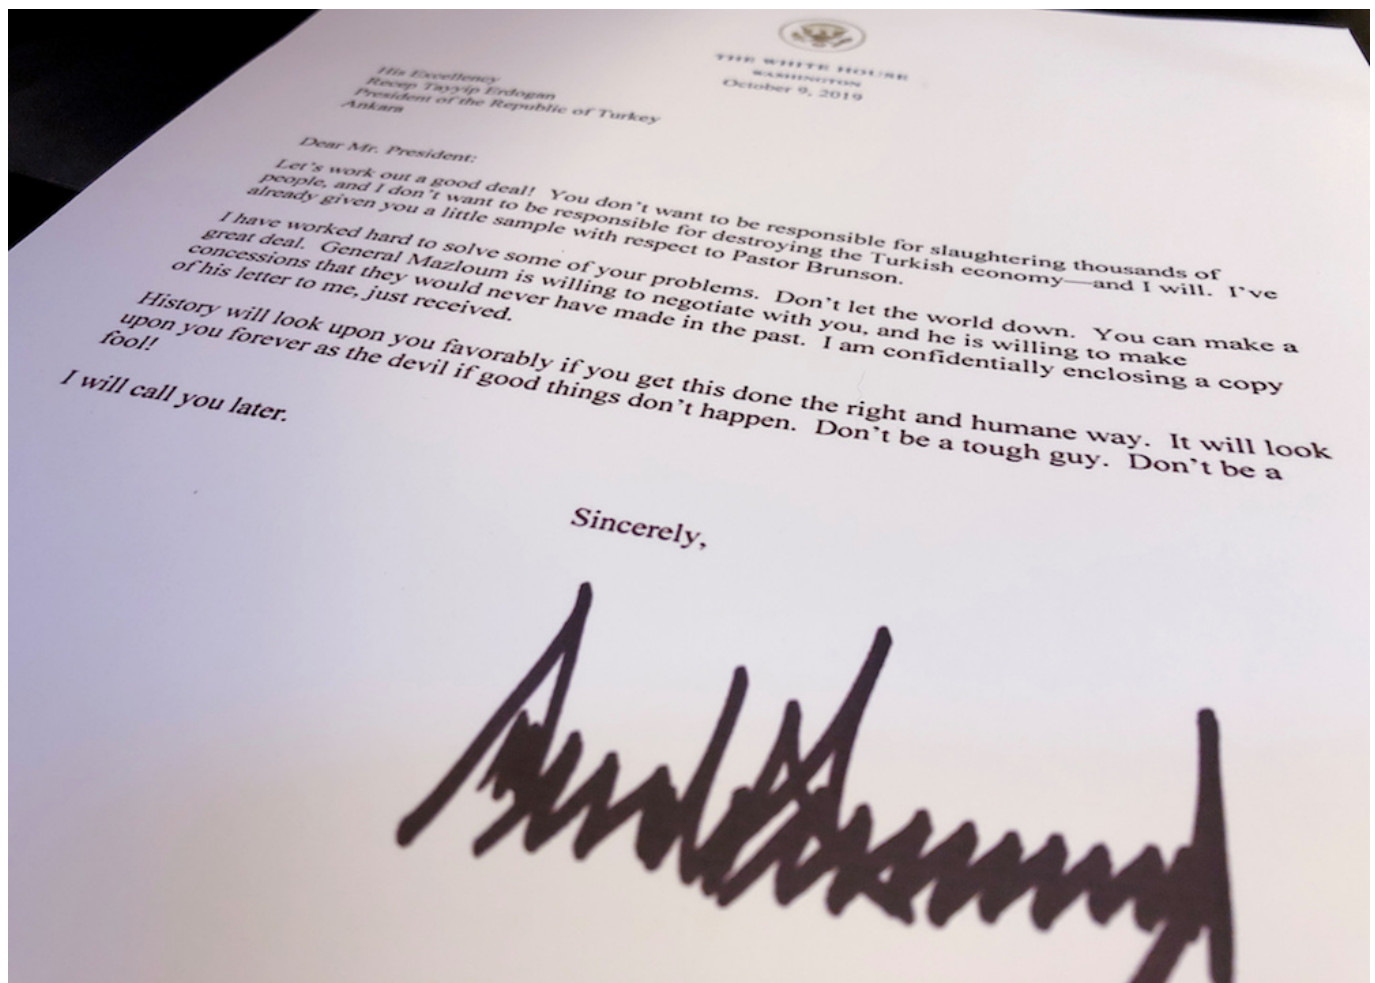 THE WHITE HOUSE
WASHINGTON
October 9, 2019
His Excellency
Recep Tayyip Erdogan
President of the Republic of Turkey
Ankara
Dear Mr. President:
Let's work out a good deal!  You don't want to be responsible for slaughtering thousands of
people, and I don't want to be responsible for destroying the Turkish economy—and I will.  I've
already given you a little sample with respect to Pastor Brunson.
I have worked hard to solve some of your problems.  Don't let the world down.  You can make a
great deal.  General Mazloum is willing to negotiate with you, and he is willing to make
concessions that they would never have made in the past.  I am confidentially enclosing a copy
of his letter to me, just received.
History will look upon you favorably if you get this done the right and humane way.  It will look
upon you forever as the devil if good things don't happen.  Don't be a tough guy.  Don't be a
fool!
I will call you later.
Sincerely,